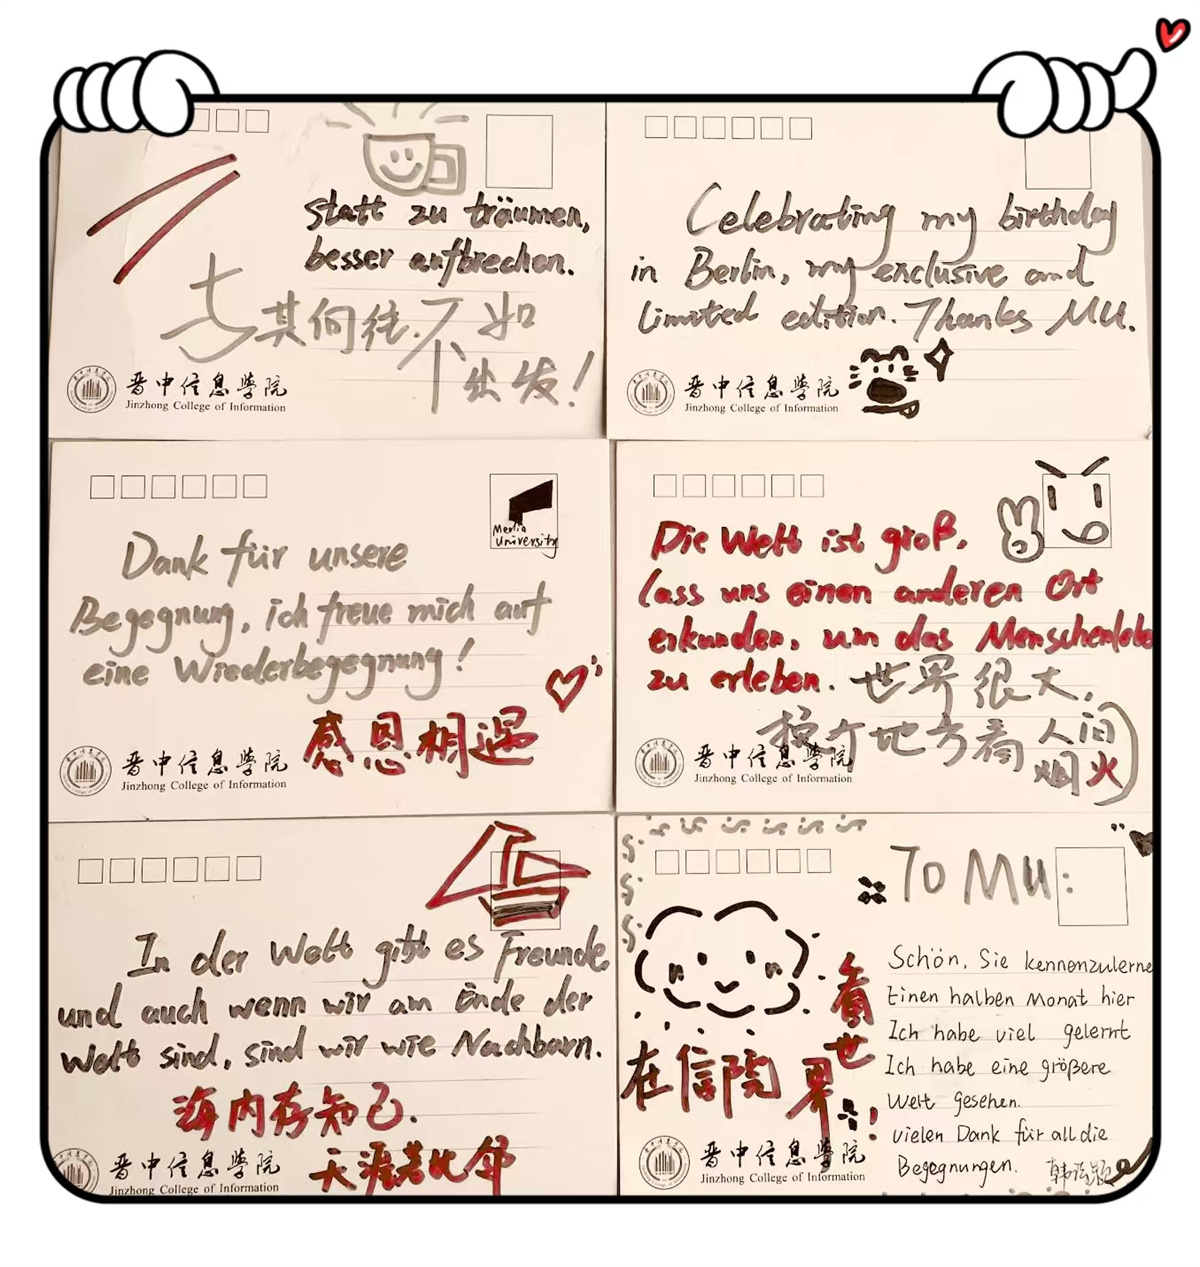 statt zu träumen,
besser aufbrechen.
与其向往.不如
出发!
晋中信息学院
Jinzhong College of Information
Celebrating my birthday
in Berlin, my exclusive and
limited edition. Thanks MU.
晋中信息学院
Jinzhong College of Information
Media
University
Dank für unsere
Begegnung, ich freue mich auf
eine Wiederbegegnung!
感恩相遇
晋中信息学院
Jinzhong College of Information
Die Welt ist groß,
lass uns einen anderen Ort
erkunden, um das Menschenlebe
zu erleben.
世界很大,
换个地方看人间
烟火
晋中信息学院
Jinzhong College of Information
In der Welt gibt es Freunde
und auch wenn wir am Ende der
Welt sind, sind wir wie Nachbarn.
海内存知己.
天涯若比邻
晋中信息学院
Jinzhong College of Information
To MU:
在信院
看世界!
Schön, Sie kennenzulerne
Einen halben Monat hier
Ich habe viel gelernt
Ich habe eine größere
Welt gesehen.
vielen Dank für all die
Begegnungen.
晋中信息学院
Jinzhong College of Information